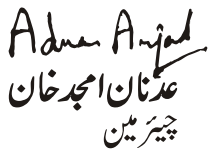 Adnan Amjad
عدنان امجد خان
چیئرمین